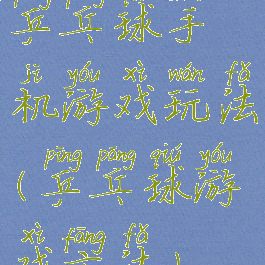 乒乓球手
jī yóu xì wán fǎ
机游戏玩法
pīng pāng qiú yóu
(乒乓球游
xì fāng fǎ
戏方法)